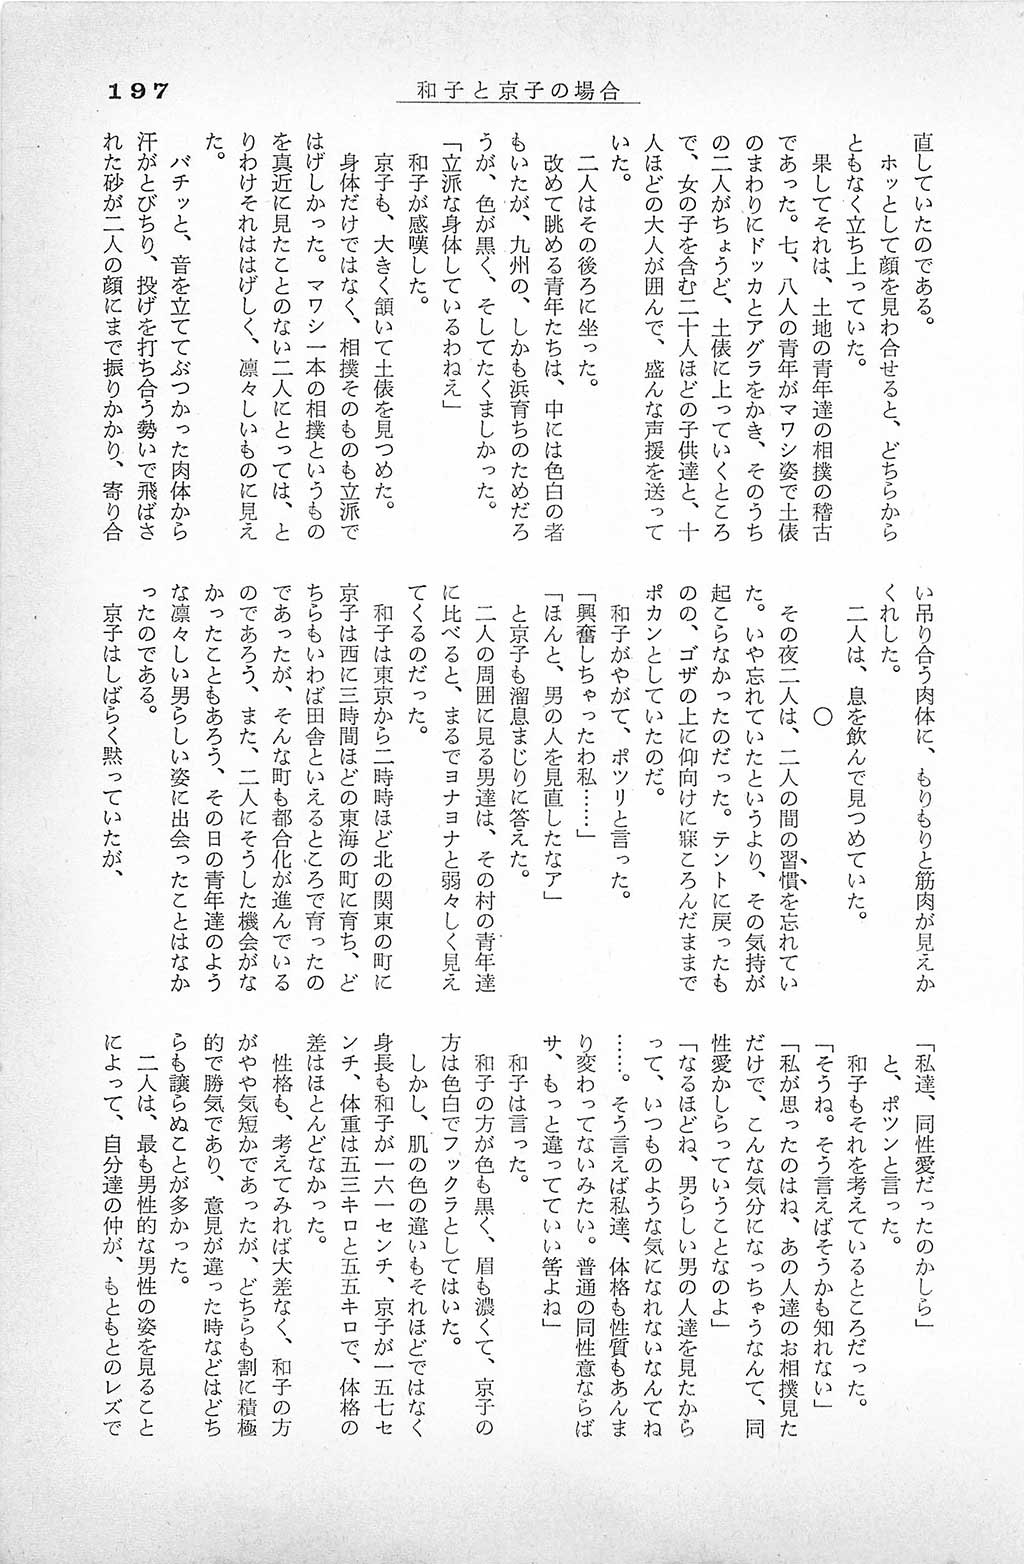 197
和子と京子の場合
直していたのである。
　ホッとして顔を見わ合せると、どちらから
ともなく立ち上っていた。
　果してそれは、土地の青年達の相撲の稽古
であった。七、八人の青年がマワシ姿で土俵
のまわりにドッカとアグラをかき、そのうち
の二人がちょうど、土俵に上っていくところ
で、女の子を含む二十人ほどの子供達と、十
人ほどの大人が囲んで、盛んな声援を送って
いた。
　二人はその後ろに坐った。
　改めて眺める青年たちは、中には色白の者
もいたが、九州の、しかも浜育ちのためだろ
うが、色が黒く、そしてたくましかった。
「立派な身体しているわねえ」
　和子が感嘆した。
　京子も、大きく頷いて土俵を見つめた。
　身体だけではなく、相撲そのものも立派で
はげしかった。マワシ一本の相撲というもの
を真近に見たことのない二人にとっては、と
りわけそれははげしく、凛々しいものに見え
た。
　バチッと、音を立ててぶつかった肉体から
汗がとびちり、投げを打ち合う勢いで飛ばさ
れた砂が二人の顔にまで振りかかり、寄り合
い吊り合う肉体に、もりもりと筋肉が見えか
くれした。
　二人は、息を飲んで見つめていた。
○
　その夜二人は、二人の間の習慣を忘れてい
た。いや忘れていたというより、その気持が
起こらなかったのだった。テントに戻ったも
のの、ゴザの上に仰向けに寐ころんだままで
ポカンとしていたのだ。
　和子がやがて、ポツリと言った。
「興奮しちゃったわ私……」
「ほんと、男の人を見直したなア」
　と京子も溜息まじりに答えた。
　二人の周囲に見る男達は、その村の青年達
に比べると、まるでヨナヨナと弱々しく見え
てくるのだった。
　和子は東京から二時時ほど北の関東の町に
京子は西に三時間ほどの東海の町に育ち、ど
ちらもいわば田舎といえるところで育ったの
であったが、そんな町も都合化が進んでいる
のであろう、また、二人にそうした機会がな
かったこともあろう、その日の青年達のよう
な凛々しい男らしい姿に出会ったことはなか
ったのである。
　京子はしばらく黙っていたが、
「私達、同性愛だったのかしら」
　と、ポツンと言った。
　和子もそれを考えているところだった。
「そうね。そう言えばそうかも知れない」
「私が思ったのはね、あの人達のお相撲見た
だけで、こんな気分になっちゃうなんて、同
性愛かしらっていうことなのよ」
「なるほどね、男らしい男の人達を見たから
って、いつものような気になれないなんてね
……。そう言えば私達、体格も性質もあんま
り変わってないみたい。普通の同性意ならば
サ、もっと違ってていい筈よね」
　和子は言った。
　和子の方が色も黒く、眉も濃くて、京子の
方は色白でフックラとしてはいた。
　しかし、肌の色の違いもそれほどではなく
身長も和子が一六一センチ、京子が一五七セ
ンチ、体重は五三キロと五五キロで、体格の
差はほとんどなかった。
　性格も、考えてみれば大差なく、和子の方
がやや気短かであったが、どちらも割に積極
的で勝気であり、意見が違った時などはどち
らも譲らぬことが多かった。
　二人は、最も男性的な男性の姿を見ること
によって、自分達の仲が、もともとのレズで